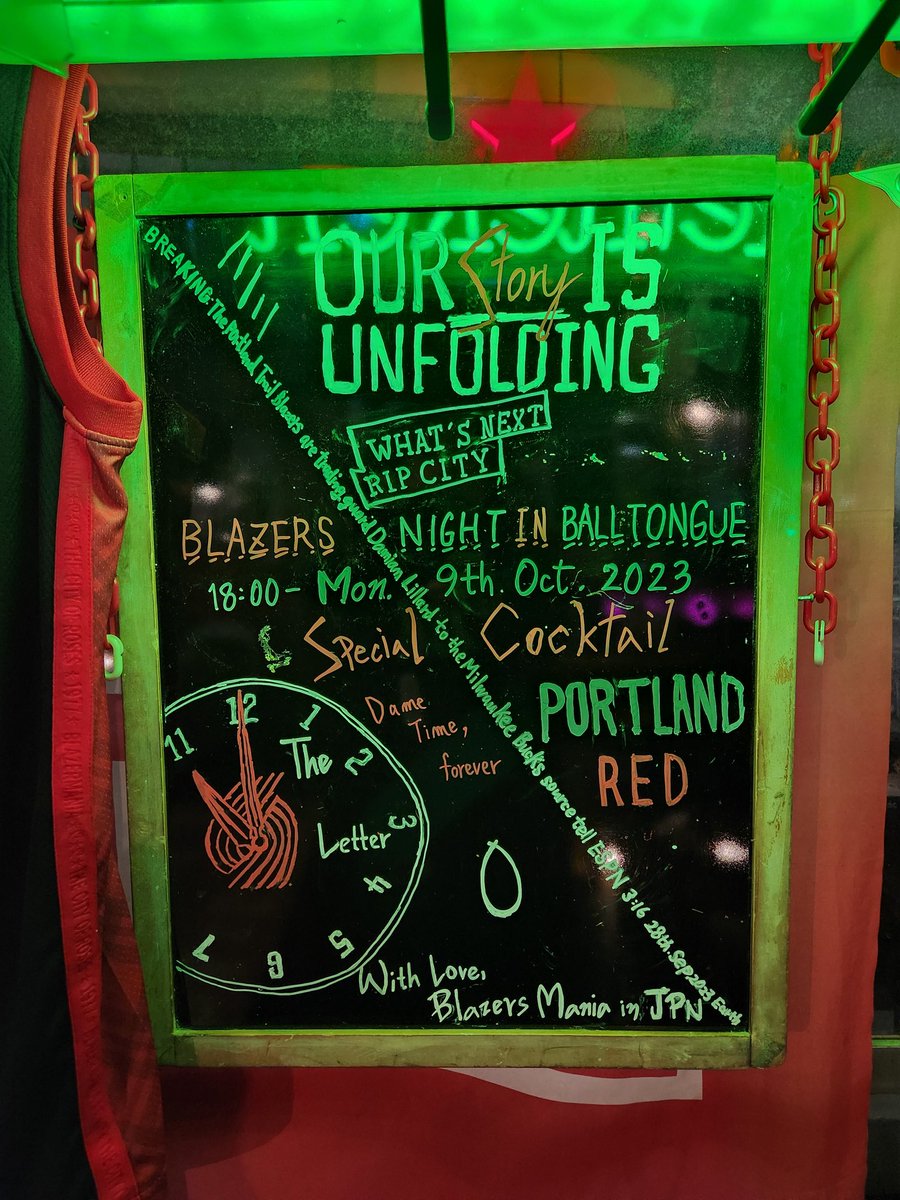 OUR Story IS
UNFOLDING
WHAT'S NEXT
RIP CITY
BREAKING The Portland Trail Blazers are trading guard Damian Lillard to the Milwaukee Bucks source tell ESPN 3:16 28th. Sep 2023
BLAZERS NIGHT IN BALLTONGUE
18:00 - Mon. 9th. Oct. 2023
Special Cocktail
PORTLAND
RED
Dame
Time,
forever
12
1
2
3
4
5
6
7
11
The
Letter
O
With Love,
Blazers Mania in JPN